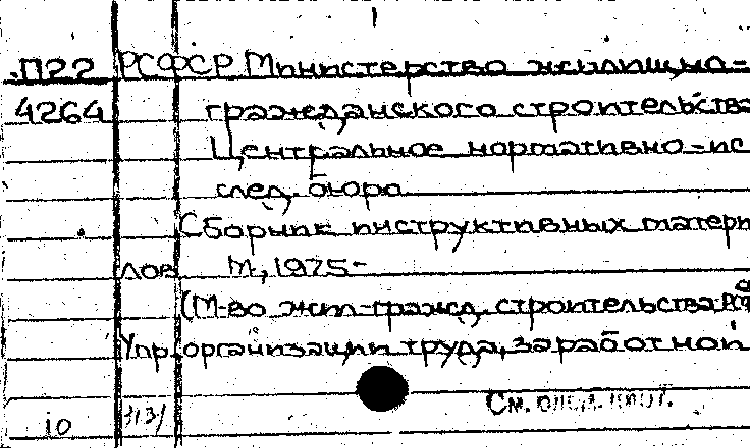 П22 РСФСР Министерство жилищно-
4264 гражданского строительства
Центральное нормативно-ис
след. бюро
Сборник инструктивных матери
лов М., 1975-
(М-во жил-гражд. строительства РСФ
Упр. организации труда, заработной
См.
10